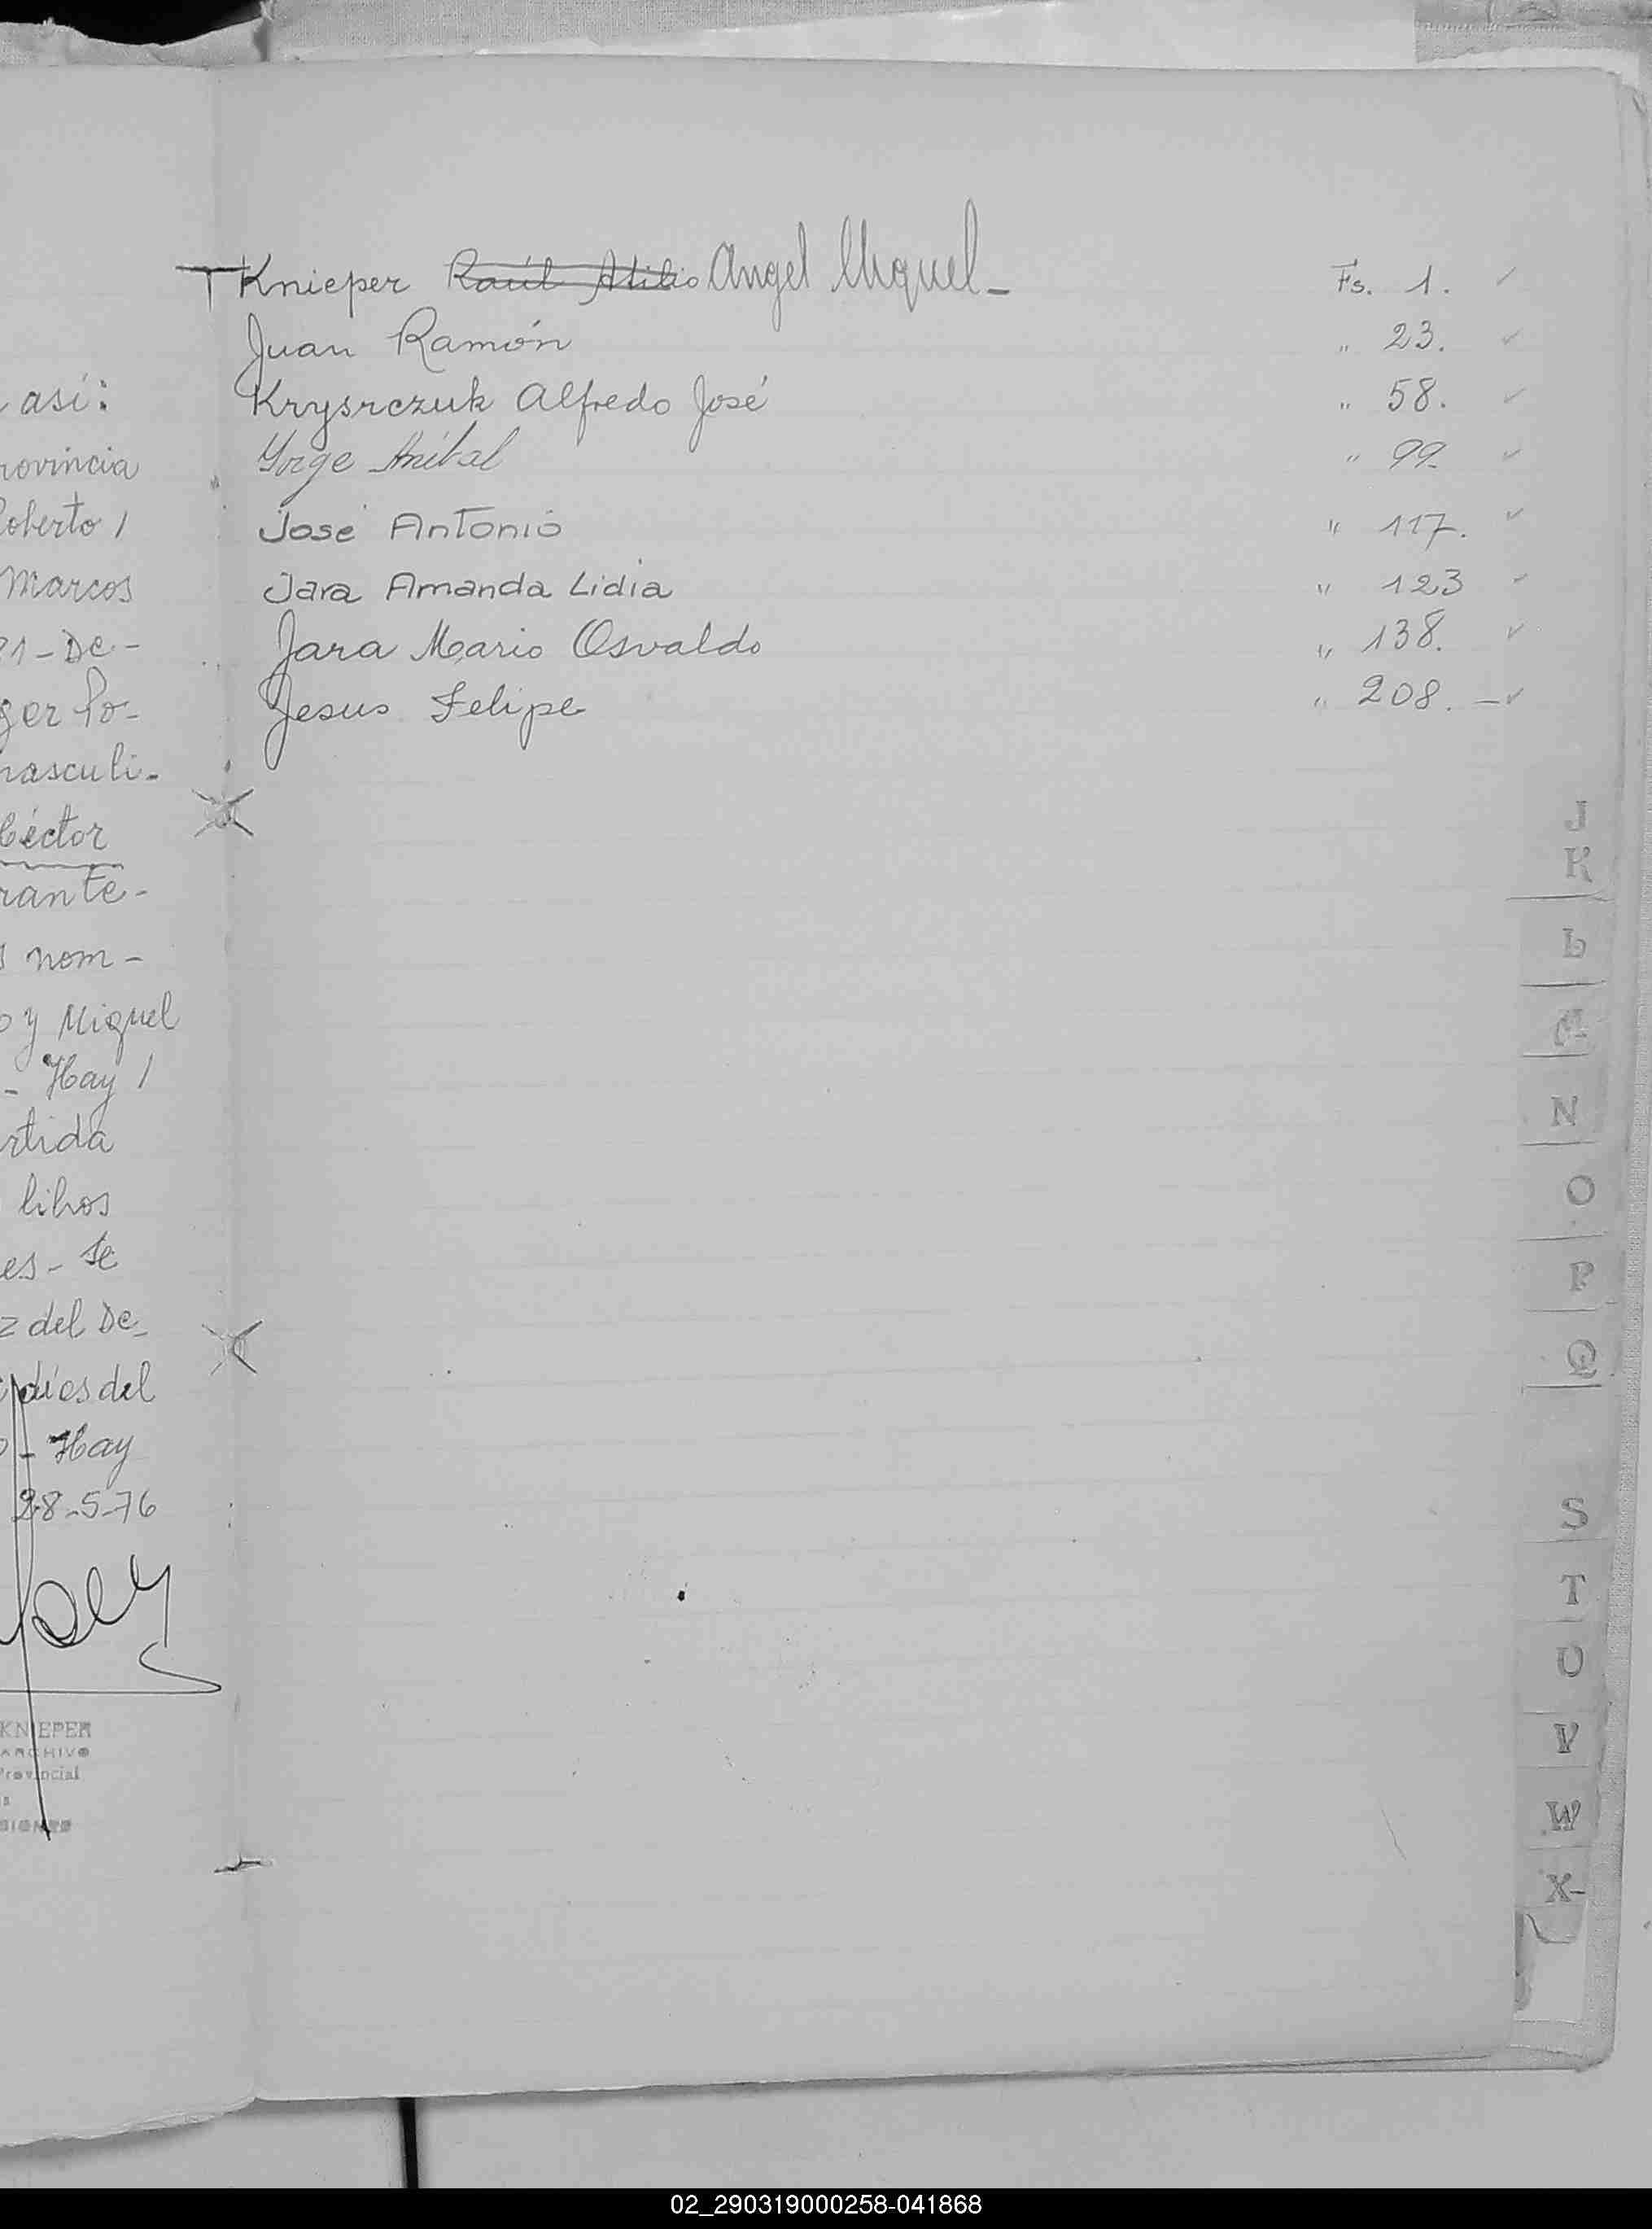 así:
rovincia
Roberto /
Marcos
21-De-
ger Po-
masculi-
Héctor
rante-
s nom-
o y Miguel
- Hay /
rtida
libros
es - Se
z del De-
dios del
o - Hay
28-5-76
KNIEPER
ARCHIVO
Provincial
SIONES
Knieper Raúl Atilio Angel Miguel- Fs. 1. ✓
Juan Ramón " 23. ✓
Krysrczuk Alfredo José " 58. ✓
Jorge Aníbal " 99- ✓
José Antonio " 117. ✓
Jara Amanda Lidia " 123 ✓
Jara Mario Osvaldo " 138. ✓
Jesus Felipe " 208. - ✓
J
K
L
M
N
O
P
Q
S
T
U
V
W
X-
02_290319000258-041868